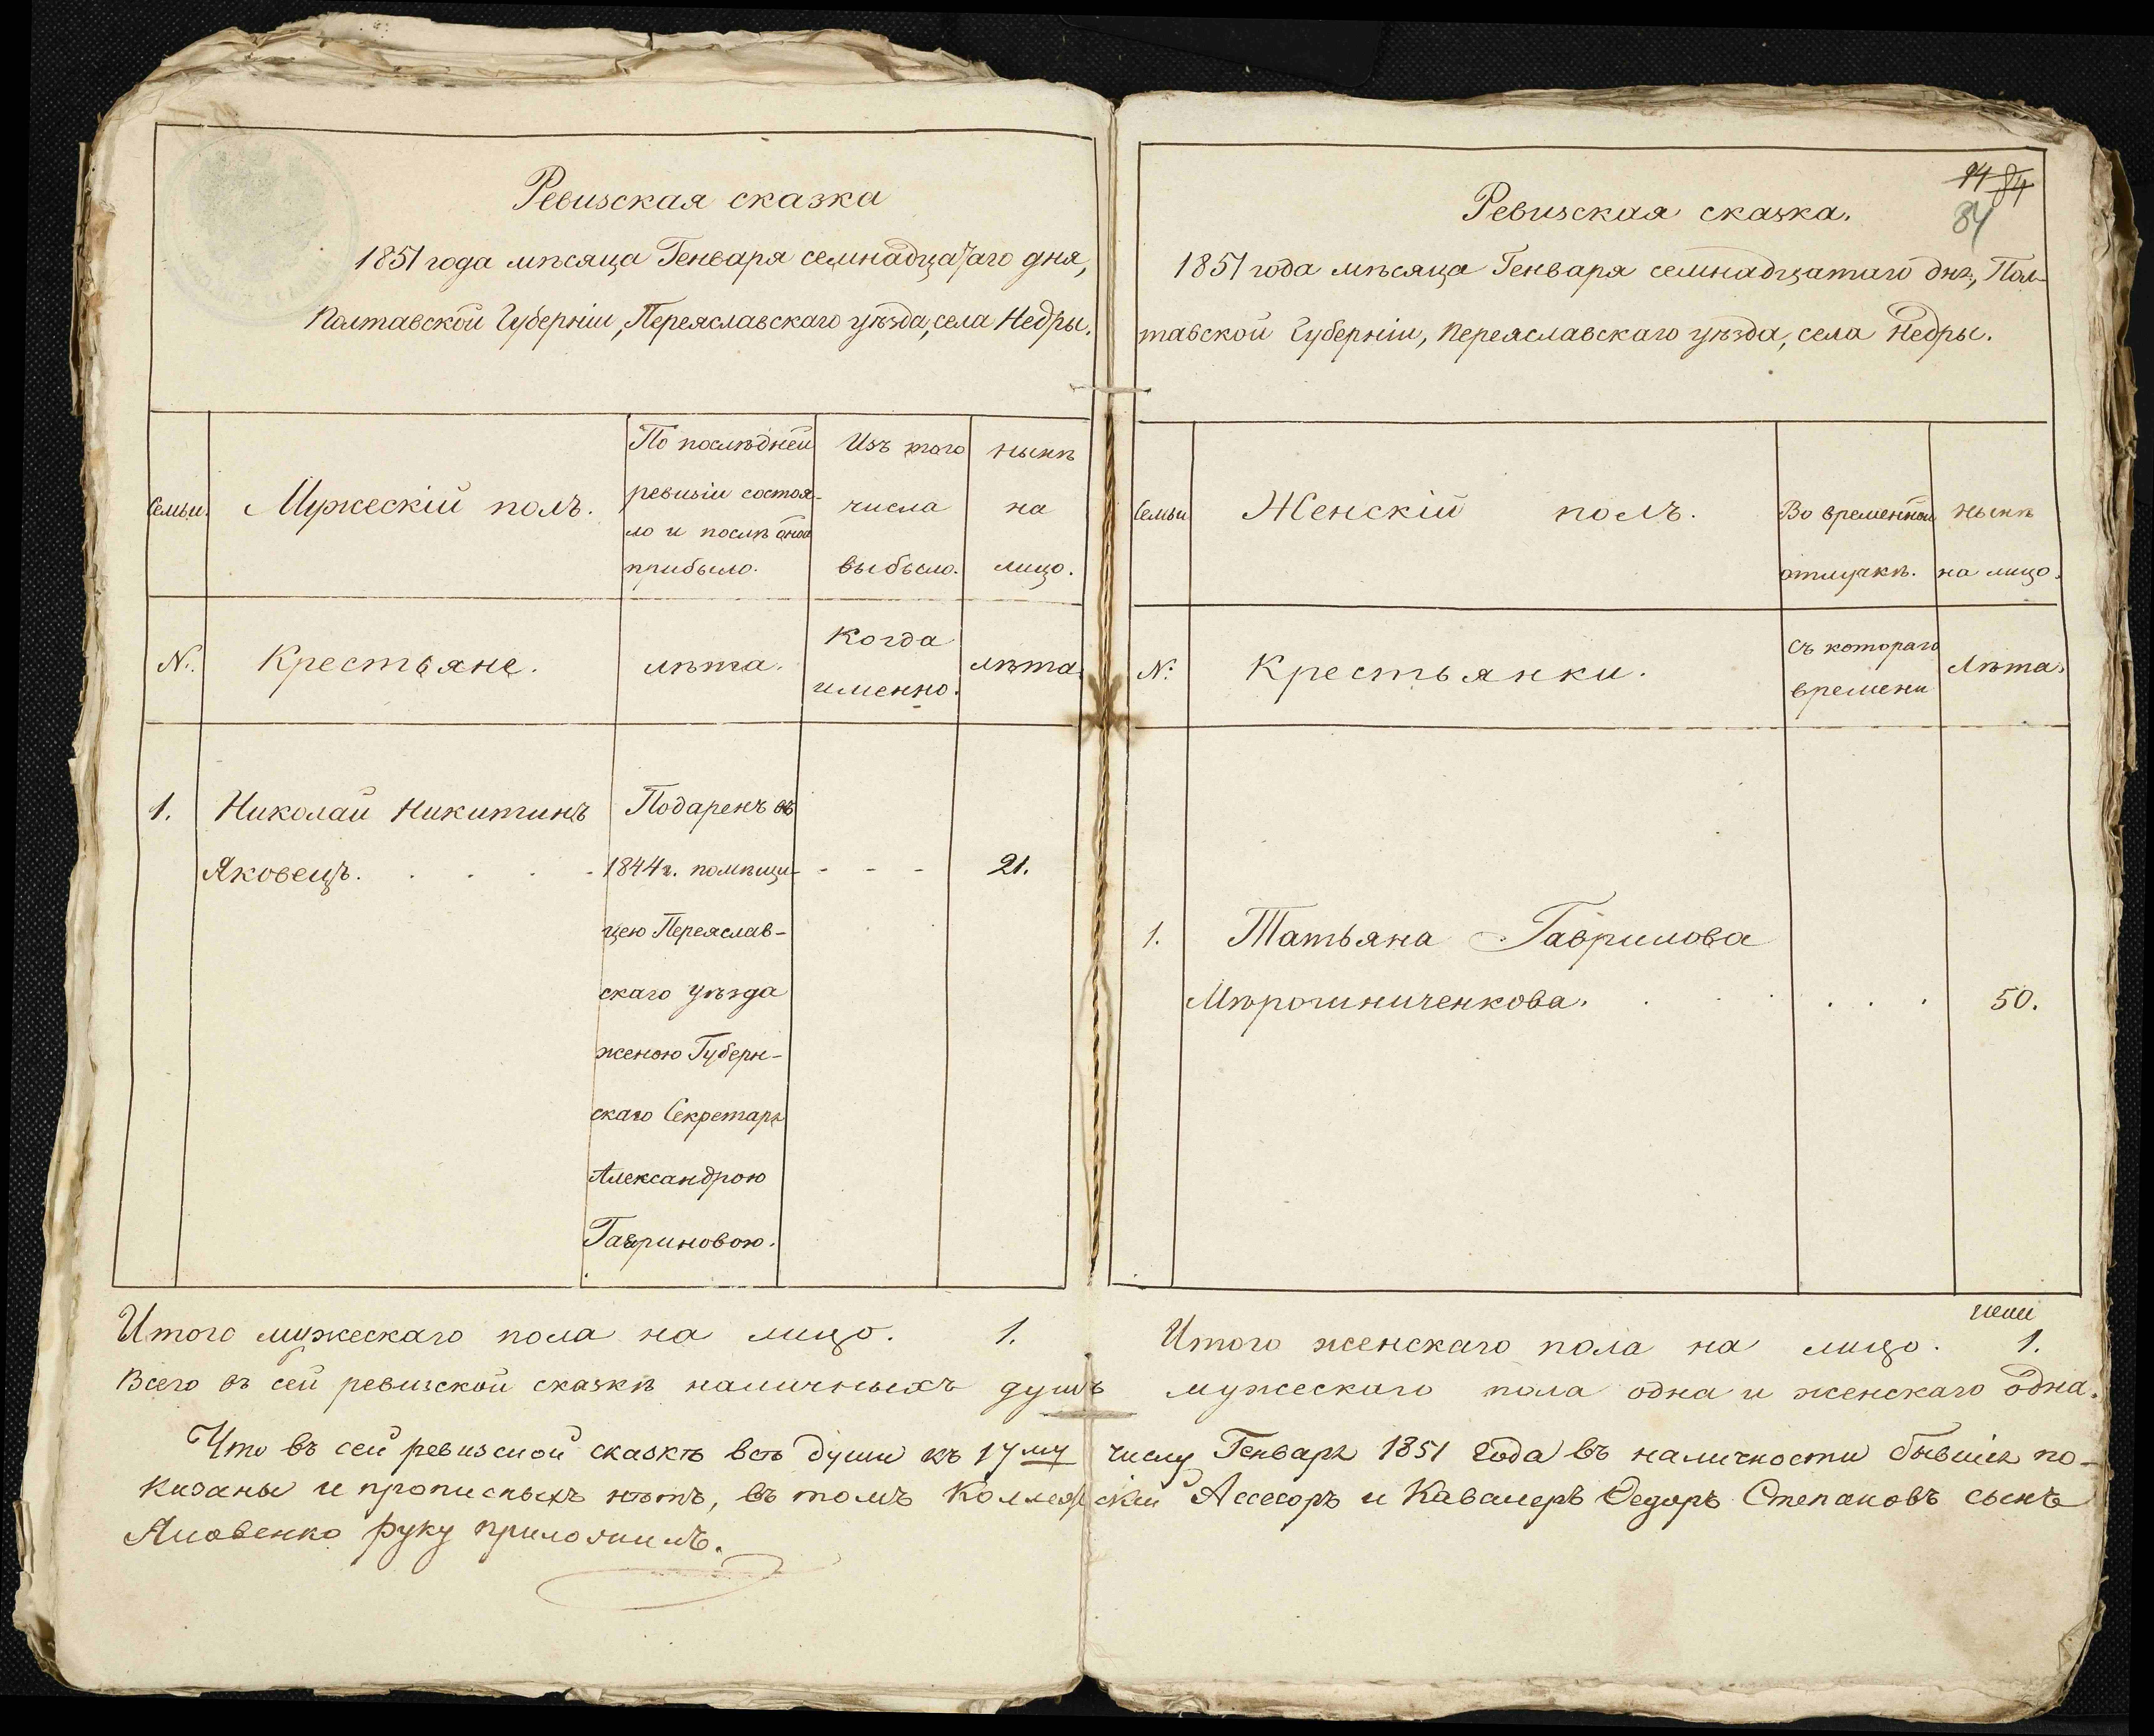 Ревизская сказка
1851 года мѣсяца Генваря семнадцатаго дня,
Полтавской Губерніи, Переяславскаго уѣзда, села Недры.
Семьи.
Мужескій полъ.
По послѣдней
ревизіи состоя-
ло и послѣ оной
прибыло.
Изъ того
числа
выбыло.
нынѣ
на
лицо.
№.
Крестьяне.
лѣта.
Когда
именно.
лѣта.
1.
Николай Никитинъ
Яковецъ. . . . -
Подаренъ въ
1844 г. помѣщи-
цею Переяслав-
скаго уѣзда
женою Губерн-
скаго Секретаря
Александрою
Гавриновою.
- - -
21.
Итого мужескаго пола на лицо. 1.
84
Ревизская сказка.
1851 года мѣсяца Генваря семнадцатаго дня, Пол-
тавской Губерніи, Переяславскаго уѣзда, села Недры.
Семьи
Женскій полъ.
Во временной
отлучкѣ.
нынѣ
на лицо.
№.
Крестьянки.
Съ котораго
времени
Лѣта.
1.
Татьяна Гаврилова
Мѣрочниченкова. . . . . .
50.
Итого женскаго пола на лицо. 1.
Всего въ сей ревизской сказкѣ наличныхъ душъ мужескаго пола одна и женскаго одна.
Что въ сей ревизской сказкѣ всѣ души къ 17му числу Генваря 1851 года въ наличности бывшія по-
казаны и прописныхъ нѣтъ, въ томъ Коллежскій Ассесоръ и Кавалеръ Ѳедоръ Степановъ сынъ
Яковенко руку приложилъ.